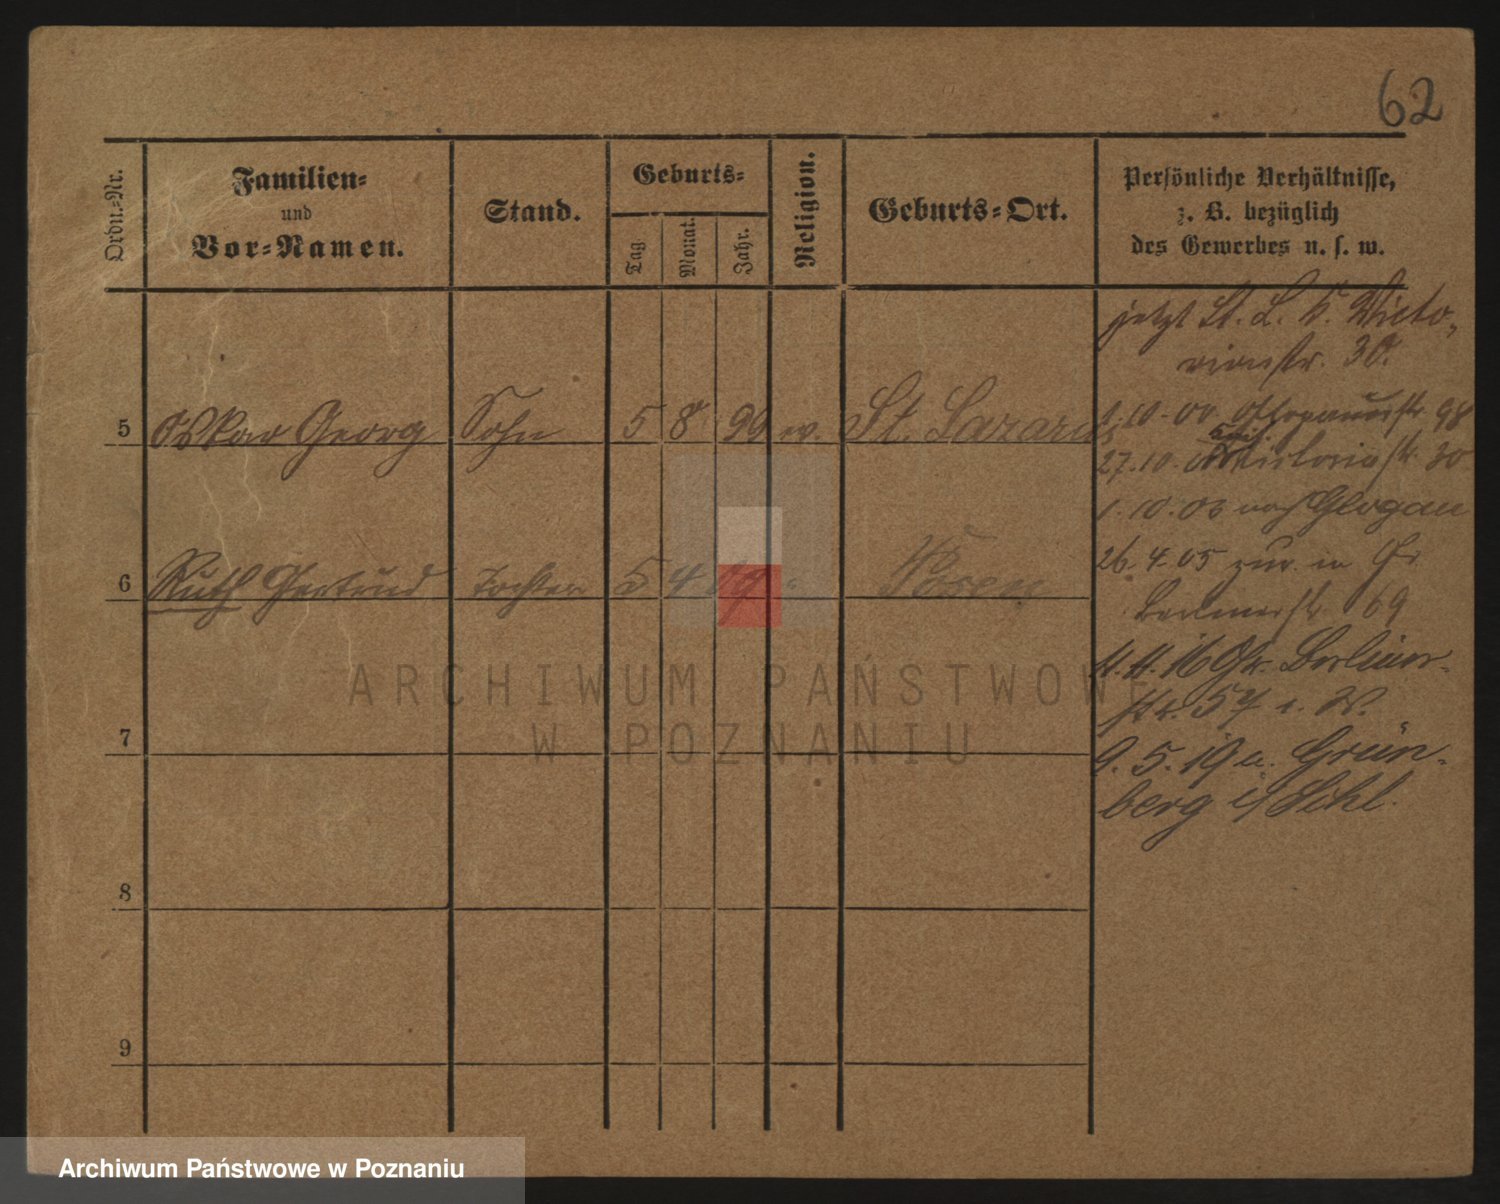 62
Ordn.-Nr.
Familien-
und
Vor-Namen.
Stand.
Geburts-
Tag.
Monat.
Jahr.
Religion.
Geburts-Ort.
Persönliche Verhältnisse,
z. B. bezüglich
des Gewerbes u. s. w.
jetzt St. L. Victo-
riastr. 30.
5 Oskar Georg Sohn 5 8 99 ev. St. Lazarus
1.10.00 98
27.10. Victoriastr. 30
1.10.03 nach Glogau
6 Ruth Gertrud Tochter 5 4 09 Posen
26.4.05 zur. in Gr.
Berlinerstr. 69
11.11.16 Gr. Berliner-
str. 57
7
9.5.19 n. Grün-
berg i/Schl.
8
9
ARCHIWUM PAŃSTWOWE
W POZNANIU
Archiwum Państwowe w Poznaniu